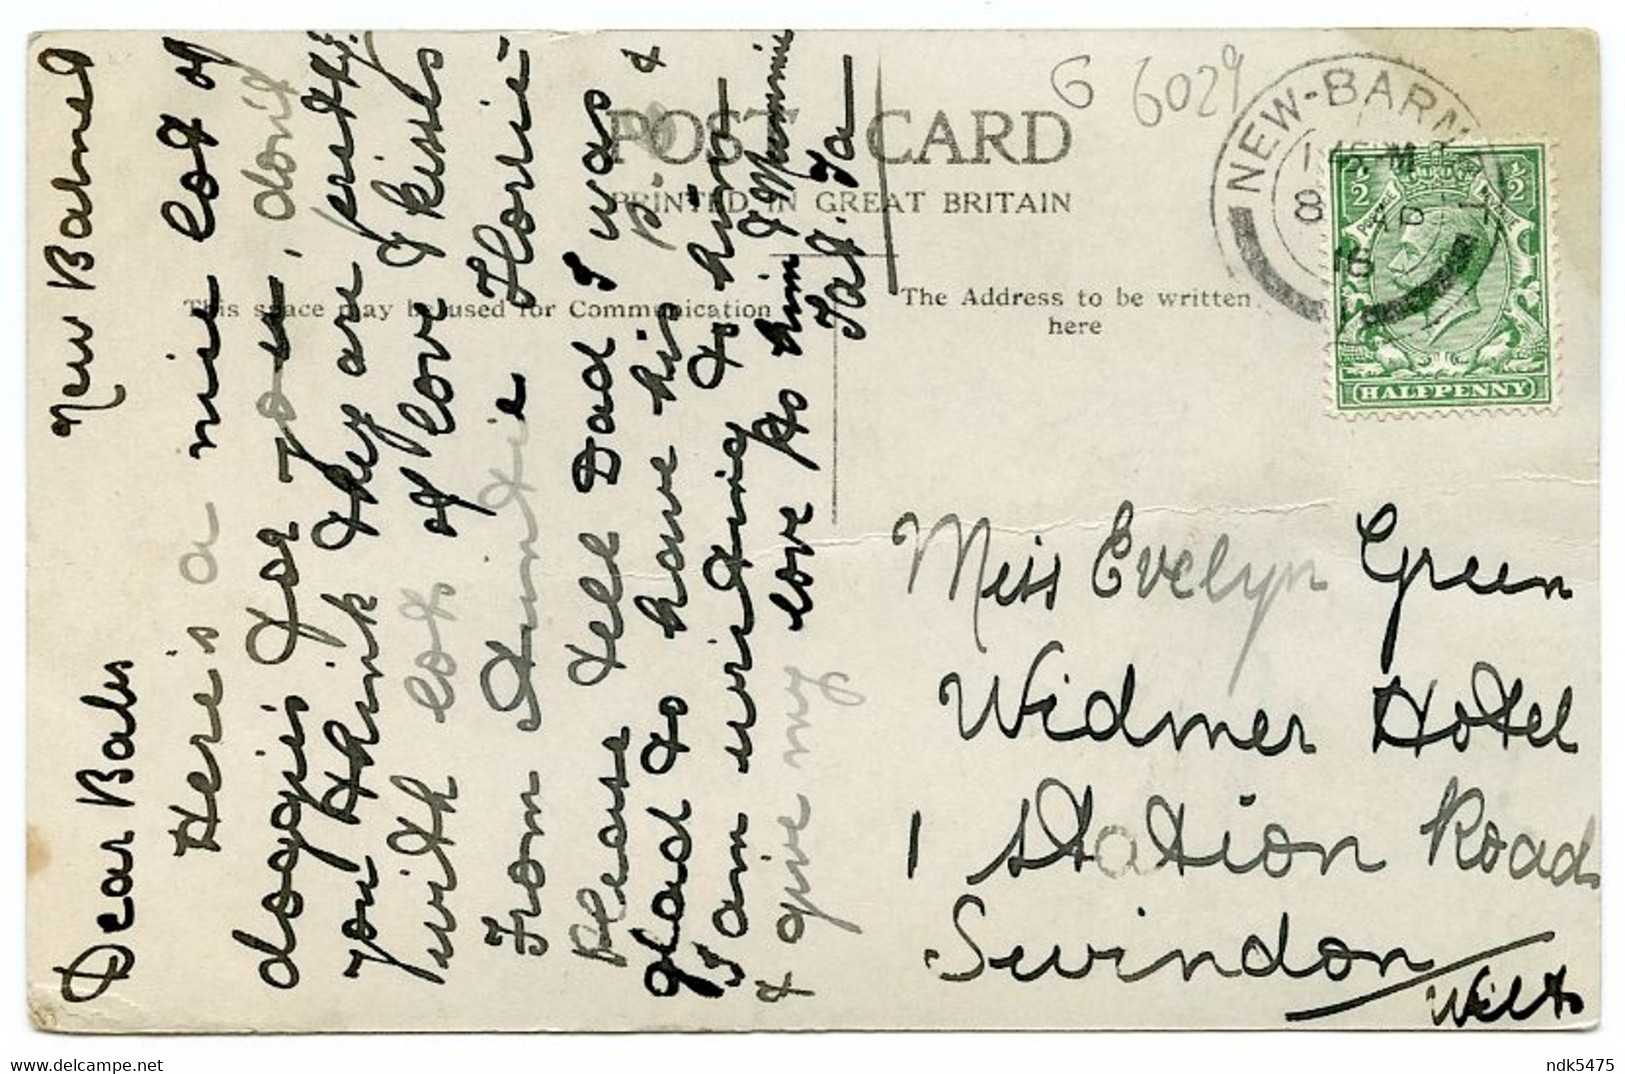 New Barnet
Dear Babs
Here's a nice lot of
doggies for you, don't
you think they are pretty?
with lots of love & kisses
From Auntie Florrie
Please tell Dad I was
glad to have his p.c &
I am writing to him
& give my love to him & Mummie
Ta. Ta
POST CARD
PRINTED IN GREAT BRITAIN
This space may be used for Communication
The Address to be written
here
G 6029
NEW-BARN
8
HALFPENNY
Miss Evelyn Green
Widmer Hotel
1 Station Road
Swindon
Wilts
ndk5475
www.delcampe.net